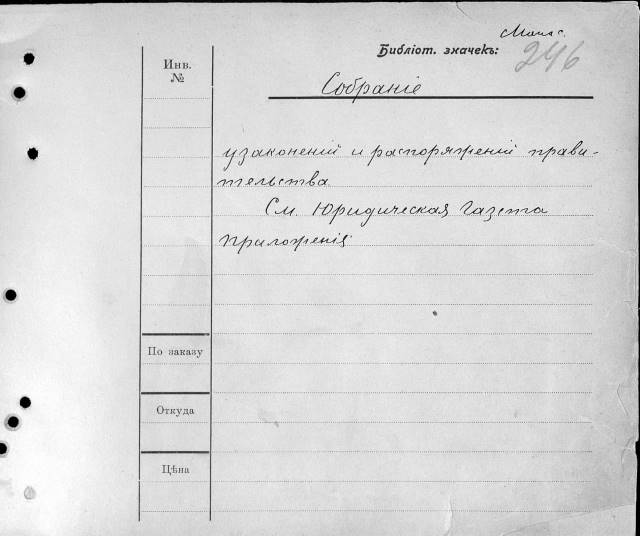 Библіот. значекъ:
246
Инв.
№
Собраніе
узаконеній и распоряженій прави-
тельства.
См. Юридическая Газета
Приложенія
По заказу
Откуда
Цѣна